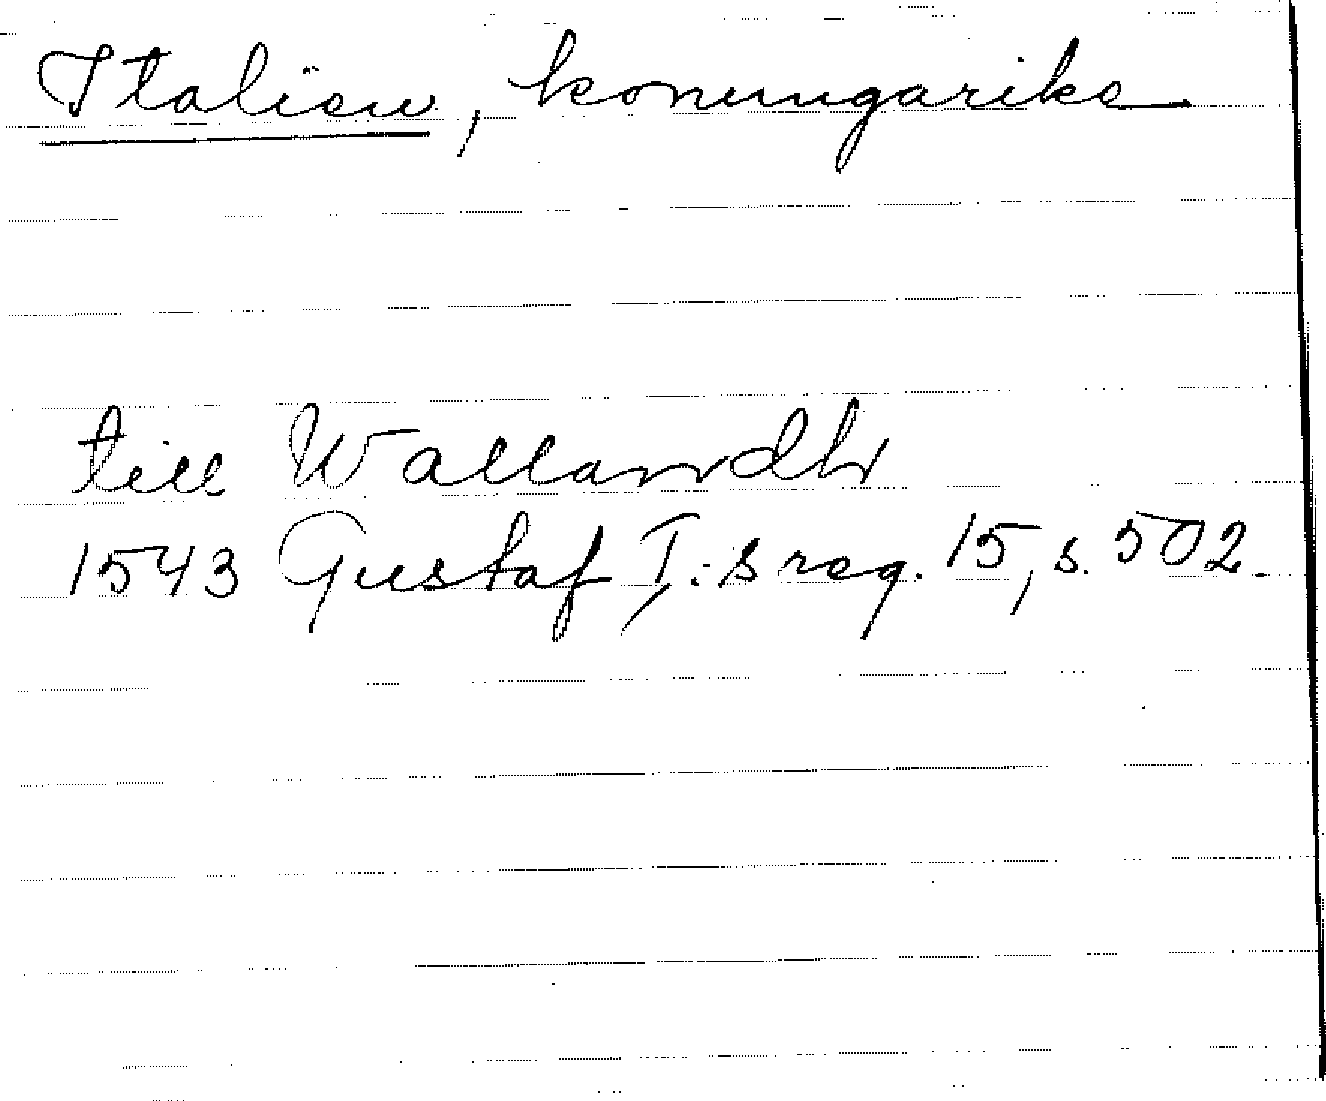 Italien, konungarike
till Wallandh
1543 Gustaf I:s reg. 15, s. 502.